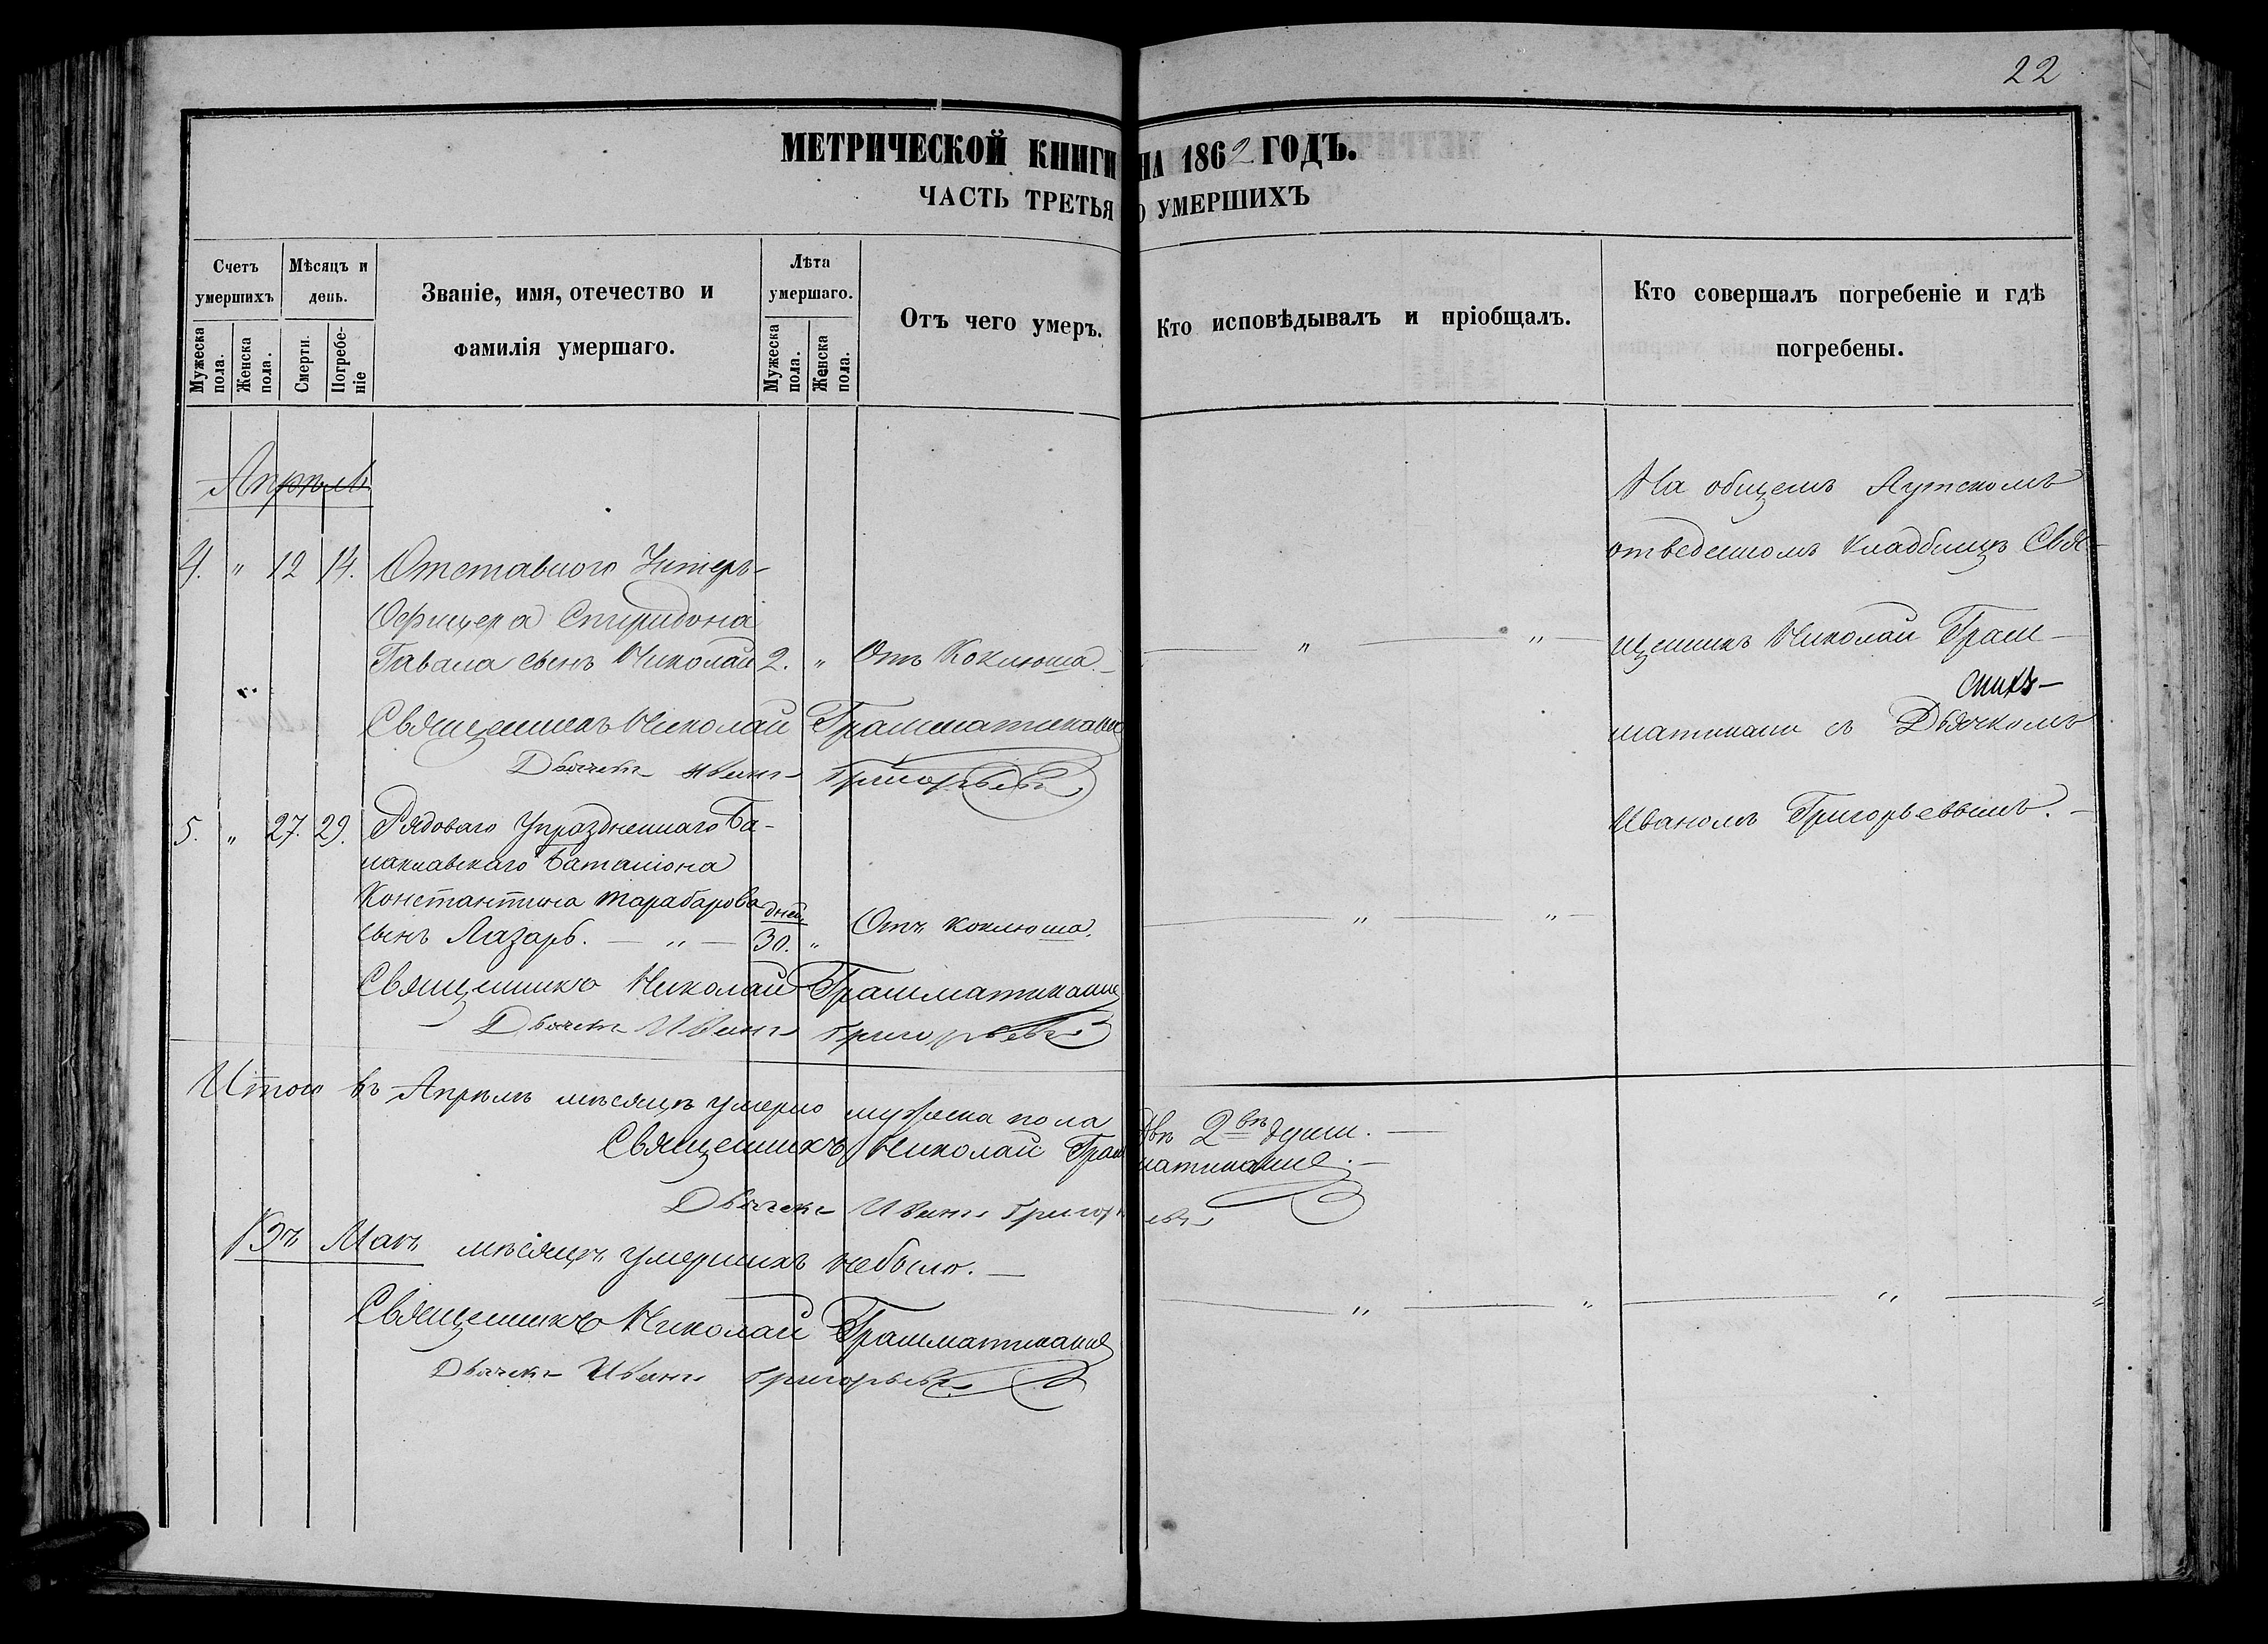 22
МЕТРИЧЕСКОЙ КНИГИ НА 1862 ГОДЪ.
ЧАСТЬ ТРЕТЬЯ О УМЕРШИХЪ
Счетъ умершихъ
Мѣсяцъ и день.
Званіе, имя, отечество и фамилія умершаго.
Лѣта умершаго.
Отъ чего умеръ.
Кто исповѣдывалъ и пріобщалъ.
Кто совершалъ погребеніе и гдѣ погребены.
Мужеска пола.
Женска пола.
Смерти.
Погребеніе
Мужеска пола.
Женска пола.
Апрѣль
4. " 12 14. Отставного Унтеръ-
Офицера Спиридона
Гавала сынъ Николай 2. " Отъ Коклюша. — " — " —
Священникъ Николай Грамматикани
Дьячекъ Иванъ Григорьевъ
На общемъ Аутскомъ
отведенномъ кладбищѣ Свя-
щенникъ Николай Грам-
матикани съ Дьячкомъ
Иваномъ Григорьевымъ. —
5. " 27. 29. Рядоваго Упраздненнаго Ба-
лаклавскаго Баталіона
Константина Тарабарова дней
сынъ Лазарь. — " — 30. " Отъ коклюша. — " — " —
Священникъ Николай Грамматикани
Дьячекъ Иванъ Григорьевъ
Итого въ Апрѣлѣ мѣсяцѣ умерло мужеска пола двѣ 2вѣ души. —
Священникъ Николай Грамматикани. —
Дьячекъ Иванъ Григорьевъ
Въ Маѣ мѣсяцѣ умершихъ небыло. —
Священникъ Николай Грамматикани — " — " — " — "
Дьячекъ Иванъ Григорьевъ